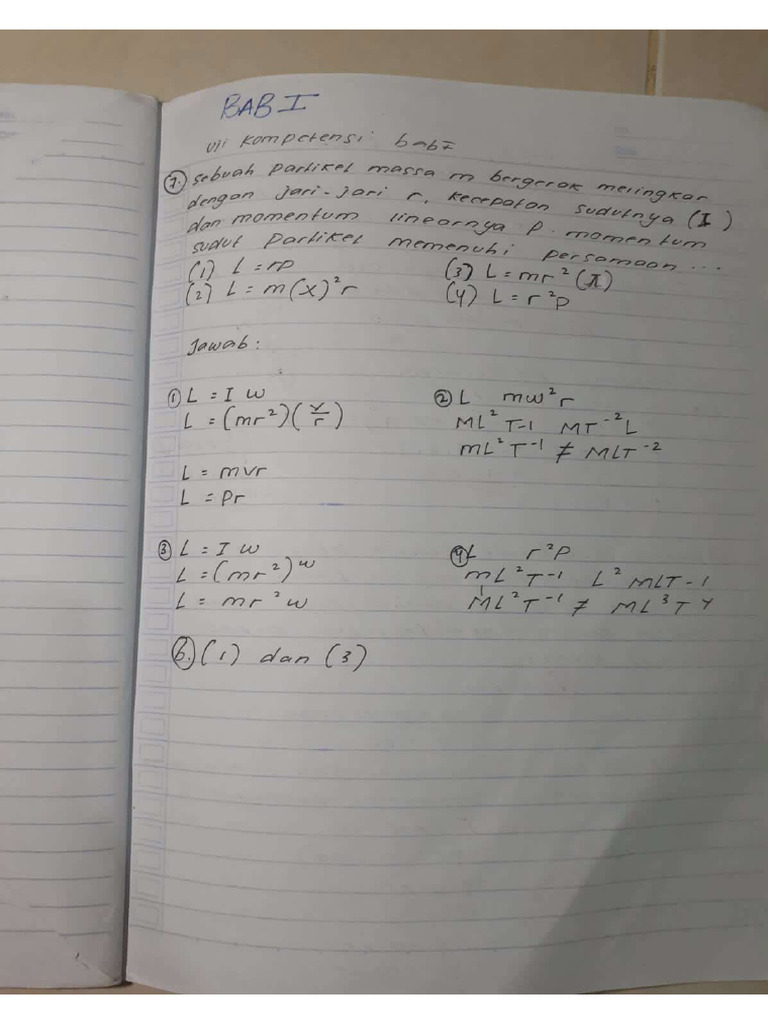 BAB I
Uji Kompetensi bab I
7. Sebuah partikel massa m bergerak meringkar
dengan jari-jari r, kecepatan sudutnya (I)
dan momentum linearnya p. momentum
sudut partikel memenuhi persamaan ...
(1) L = rp (3) L = mr² (π)
(2) L = m(x)²r (4) L = r²p
Jawab:
① L = I w ② L mw²r
L = (mr²)(v/r) ML²T-1 MT⁻²L
mL²T⁻¹ ≠ MLT⁻²
L = mvr
L = Pr
③ L = I w ④ L r²P
L = (mr²)w mL²T-1 L² MLT-1
L = mr²w ML²T⁻¹ ≠ ML³T
B. (1) dan (3)